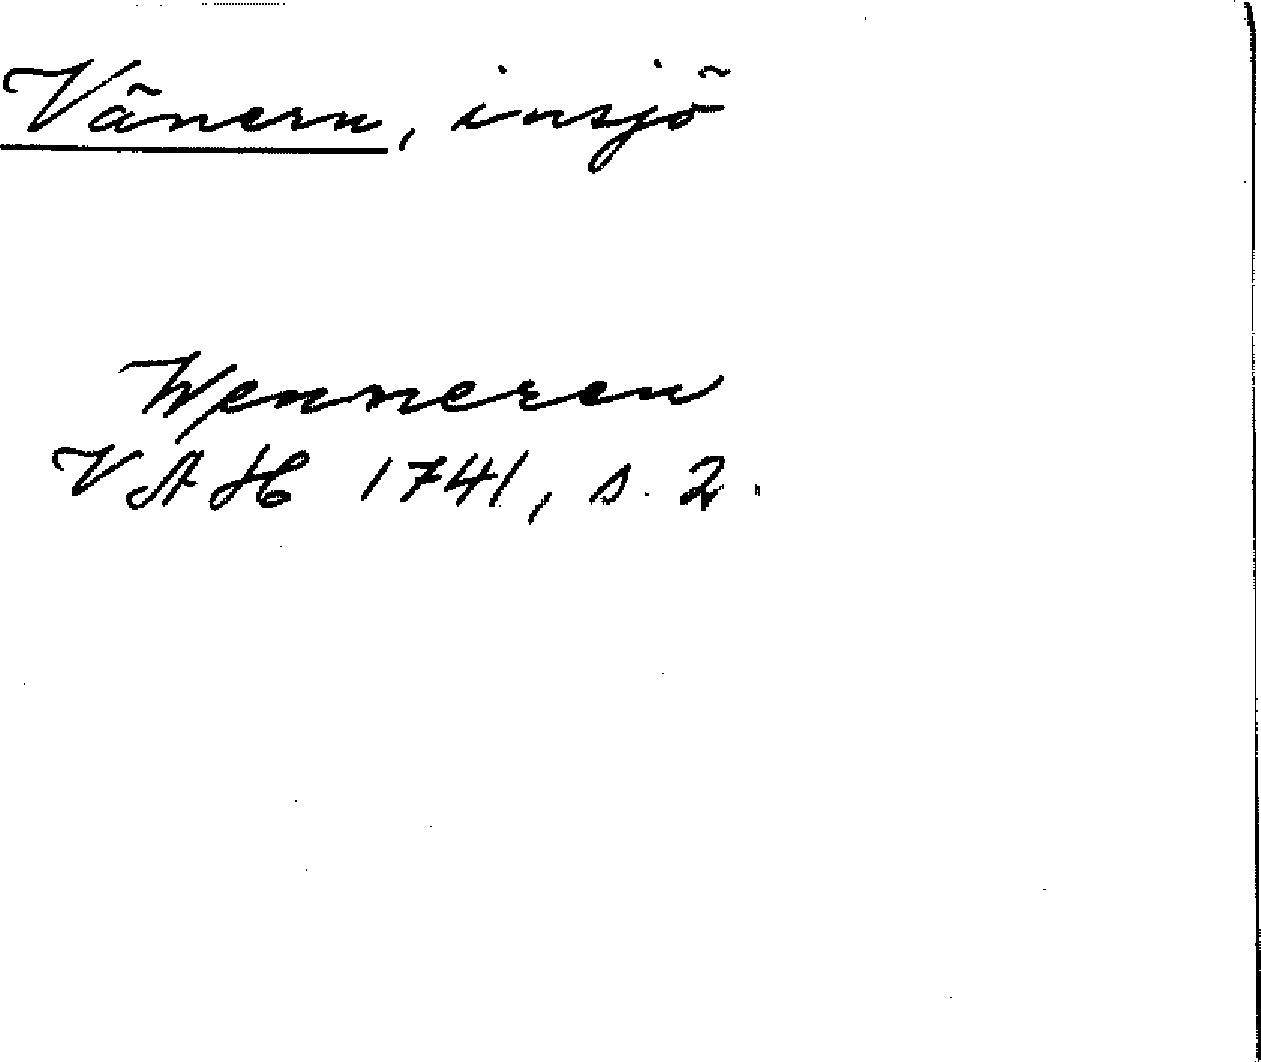 Vänern, insjö
Wenneren
VAH 1741, s. 2.